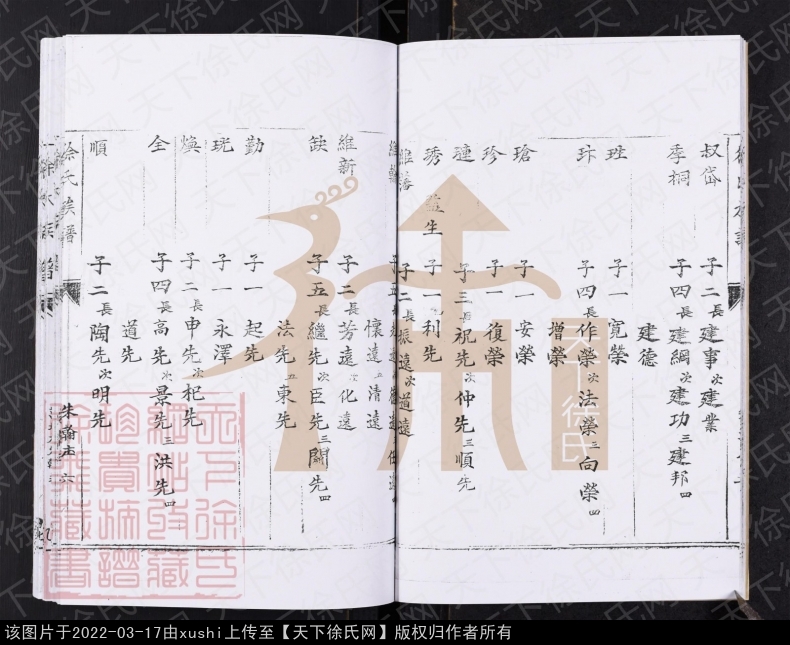 叔岱 子二 長建事 次建業
季桐 子四 長建綱 次建功 三建邦 四
建德
玨 子一 寬榮
玤 子四 長作榮 次法榮 三向榮 四
增榮
瑲 子一 安榮
珍 子一 復榮
璉 子三 長祝先 次仲先 三順先
琇 子一 利先
子二 長振遠 次道遠
懷遠 五清遠
維新 子二 長芳遠 次化遠
鈌 子五 長繼先 次臣先 三關先 四
法先 五東先
勤 子一 起先
珖 子一 永澤
煥 子二 長申先 次杞先
全 子四 長高先 次景先 三洪先 四
道先
順 子二 長陶先 次明先
徐氏族譜
天下徐氏
该图片于2022-03-17由xushi上传至【天下徐氏网】版权归作者所有